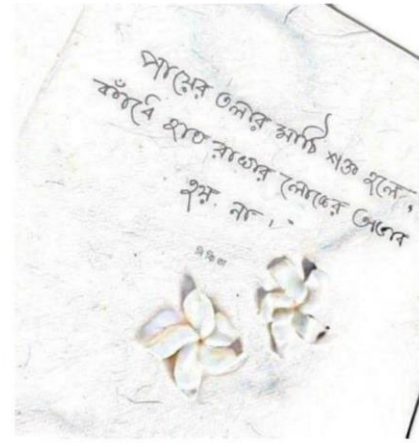 পায়ের তলার মাটি শক্ত হলে,
কাঁধে হাত রাখার লোকের অভাব
হয় না।